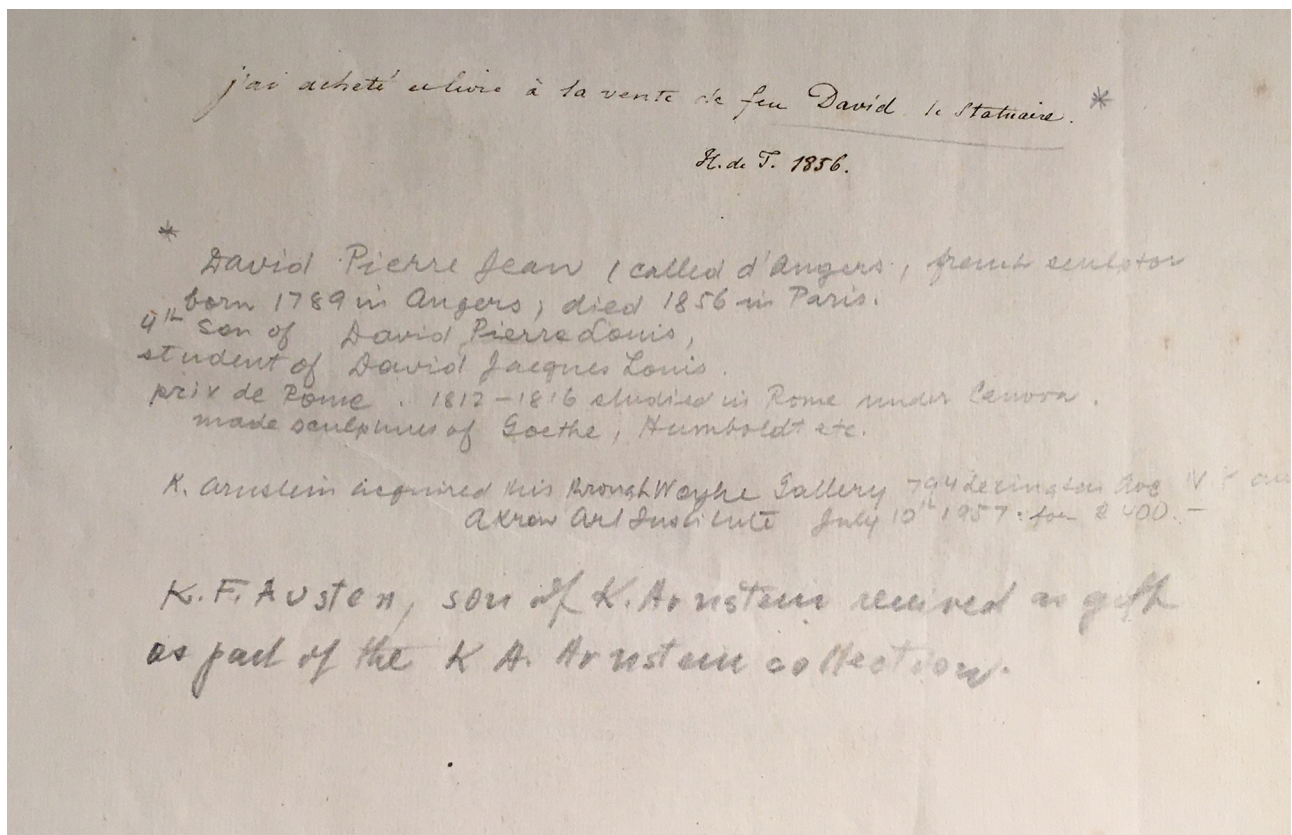 j'ai acheté ce livre à la vente de feu David le Statuaire. *
H. de T. 1856.
*
David Pierre Jean (called d'Angers, french sculptor
born 1789 in Angers, died 1856 in Paris.
4th son of David Pierre Louis,
student of David Jacques Louis.
prix de Rome. 1812-1816 studied in Rome under Canova.
made sculptures of Goethe, Humboldt etc.
K. Arnstein acquired this through Weyhe Gallery 794 Lexington Ave N.Y
Akron Art Institute July 10th 1957. for $ 400.-
K. F. Austen, son of K. Arnstein received as gift
as part of the K A. Arnstein collection.